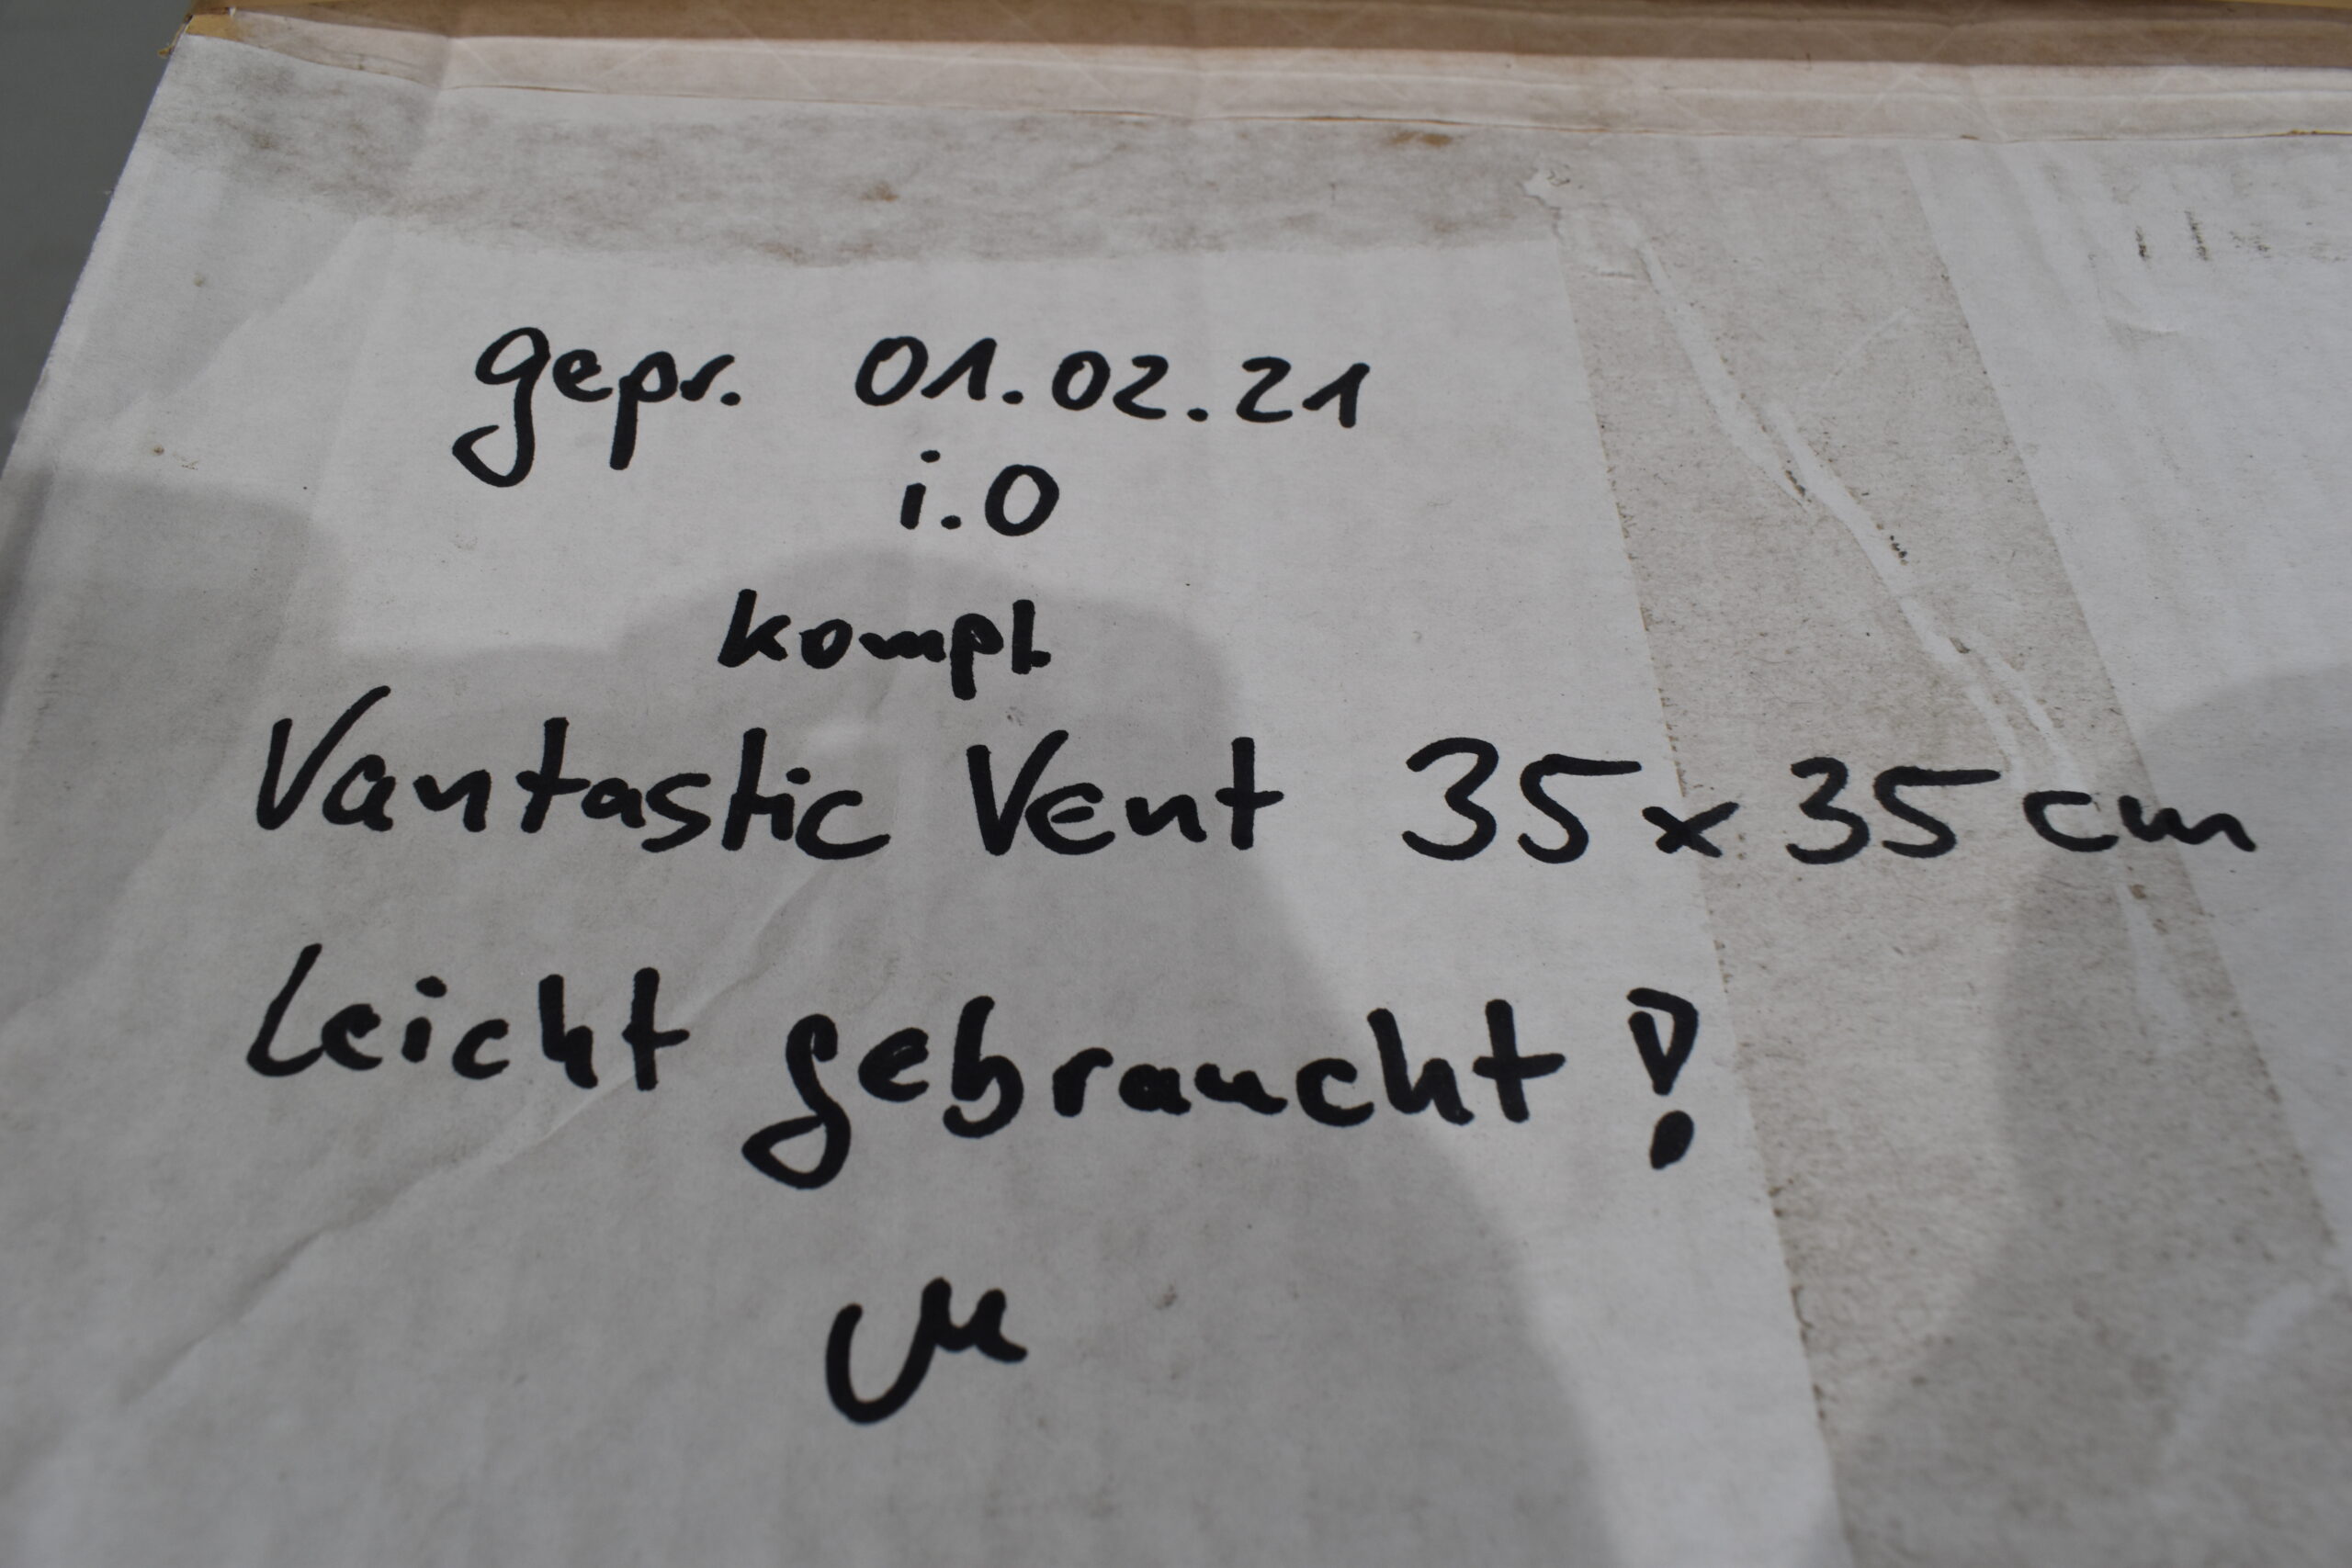 gepr. 01.02.21
i.O
kompl.
Vantastic Vent 35x35cm
leicht gebraucht!